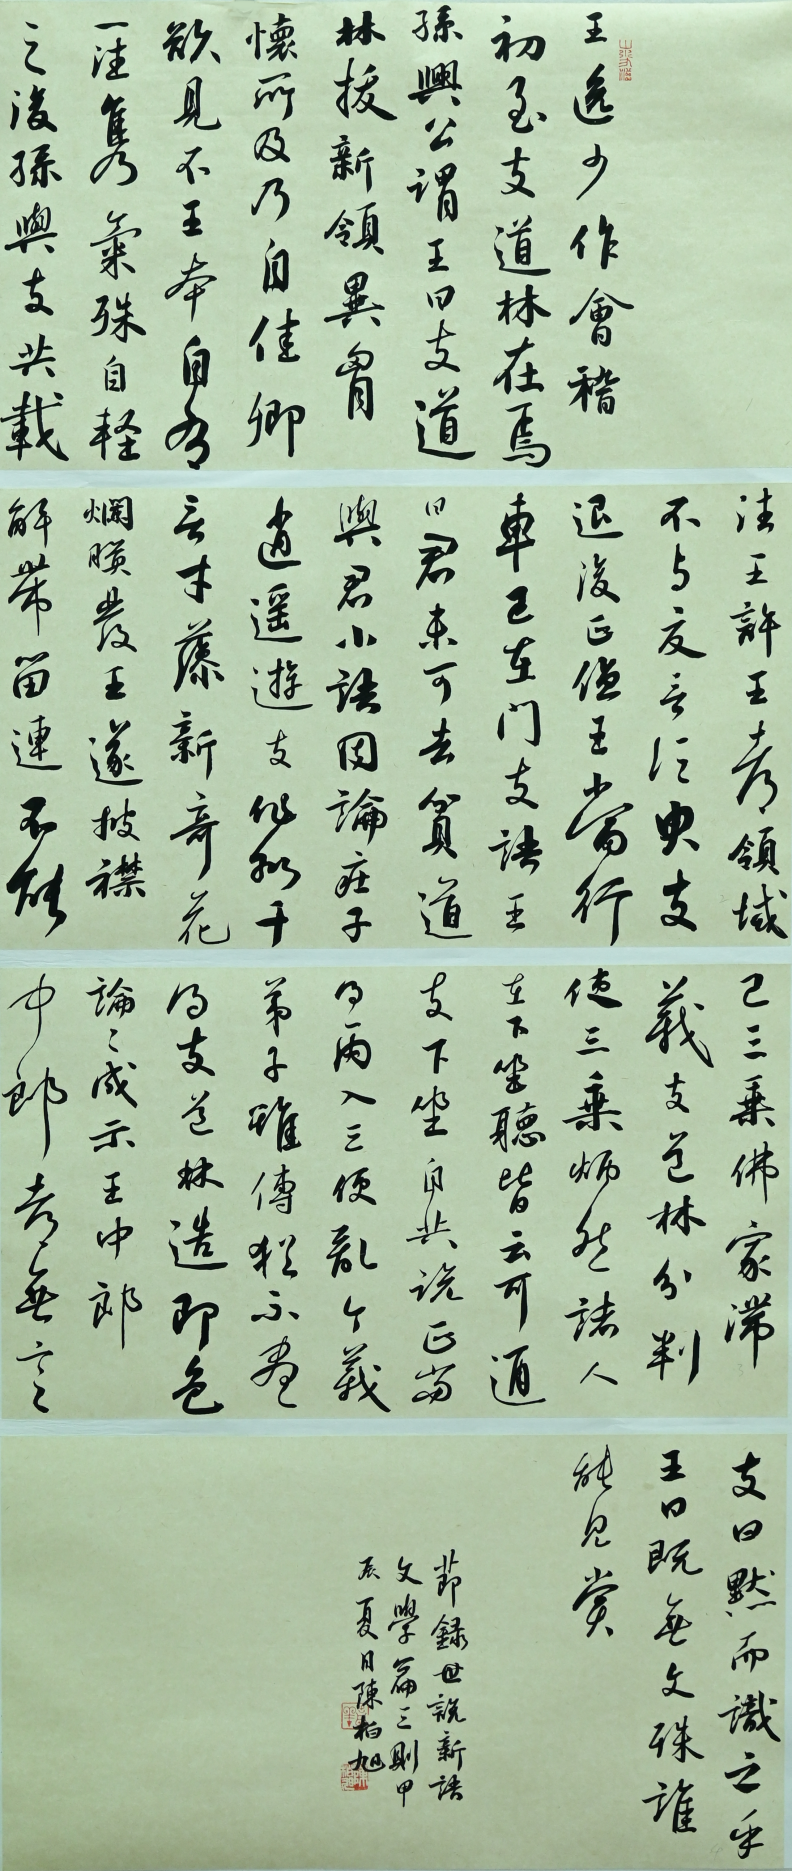 王逸少作會稽
初至支道林在焉
孫興公謂王曰支道
林拔新領異胷
懷所及乃自佳卿
欲見不王本自有
一往雋氣殊自輕
之後孫與支共載
往王許王都領域
不與交言須臾支
退後正值王當行
車已在門支語王
曰君未可去貧道
與君小語因論莊子
逍遥遊支作數千
言才藻新奇花
爛映發王遂披襟
解帶留連不能
已三乘佛家滯
義支道林分判
使三乘炳然諸人
在下坐聽皆云可通
支下坐自共説正當
得兩入三便亂今義
弟子雖傳猶不盡
得支道林造即色
論論成示王中郎
中郎都無言
支曰默而識之乎
王曰既無文殊誰
能見賞
節録世説新語
文學篇三則甲
辰夏月陳柏旭